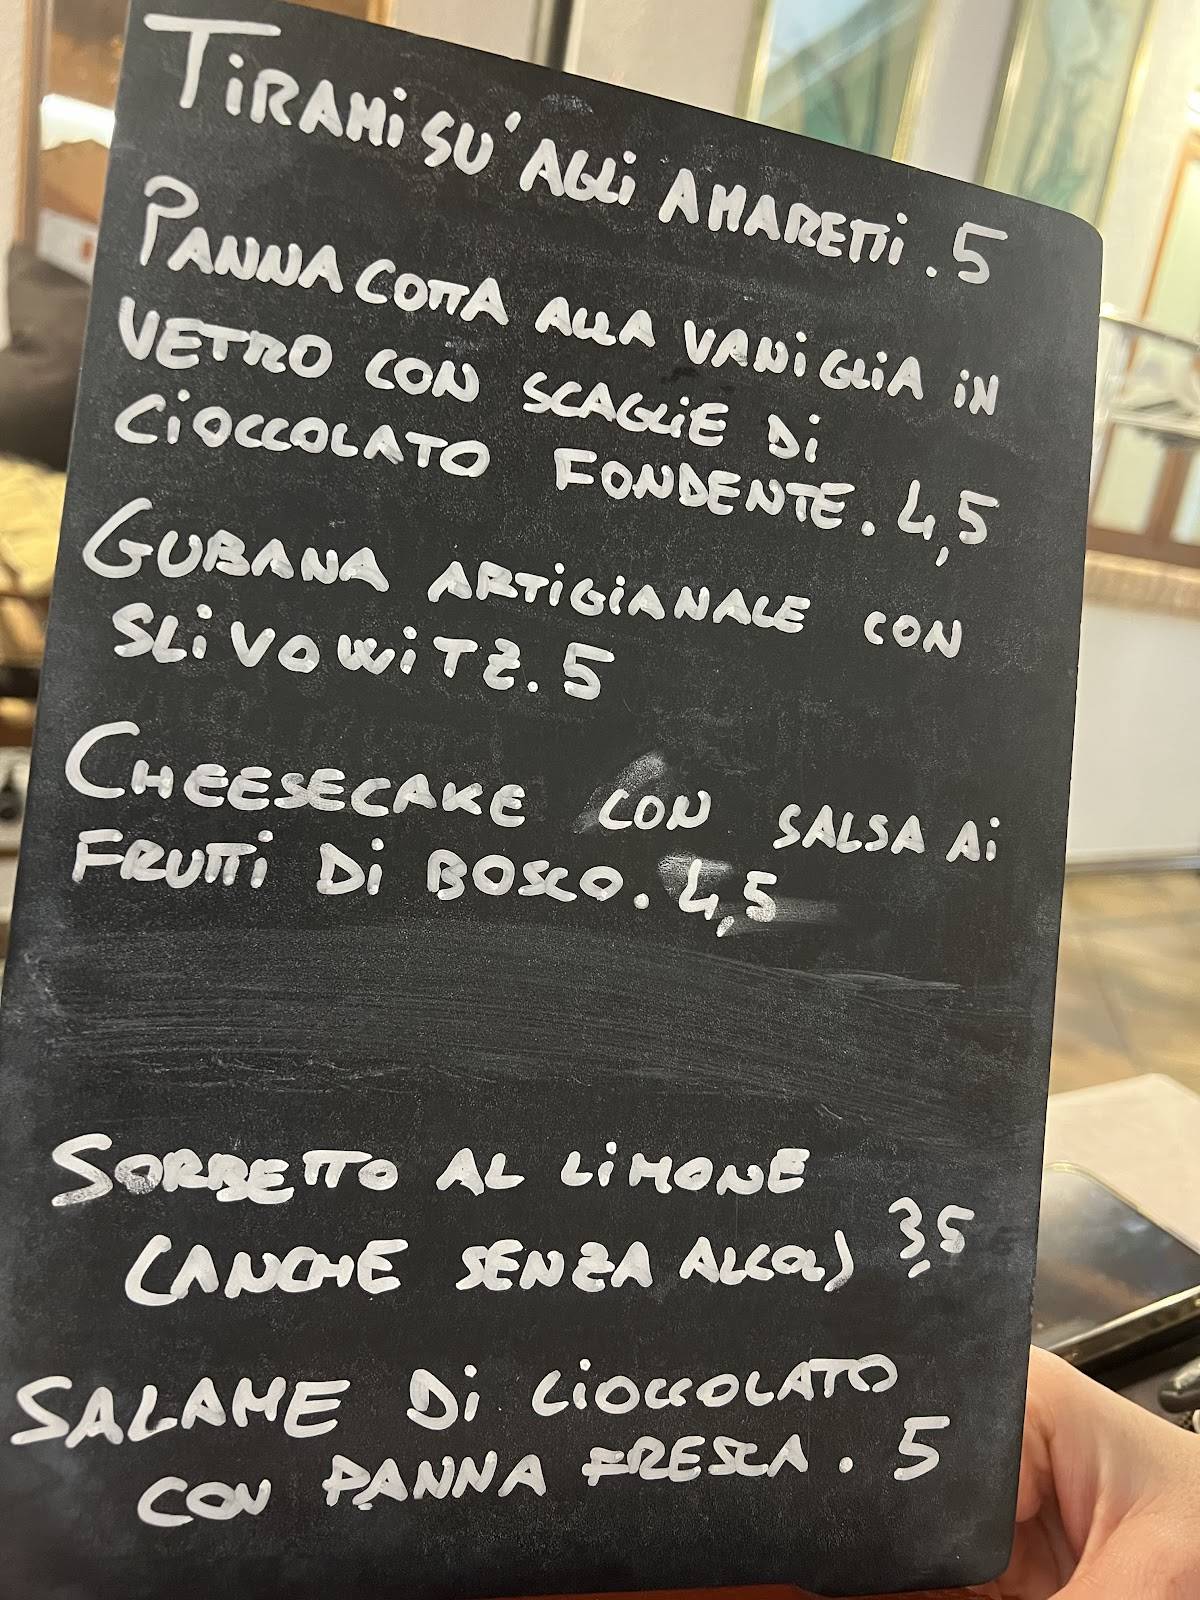 TIRAMISU' AGLI AMARETTI. 5
PANNA COTTA ALLA VANIGLIA IN
VETRO CON SCAGLIE DI
CIOCCOLATO FONDENTE. 4,5
GUBANA ARTIGIANALE CON
SLIVOWITZ. 5
CHEESECAKE CON SALSA AI
FRUTTI DI BOSCO. 4,5
SORBETTO AL LIMONE
(ANCHE SENZA ALCOL) 3,5
SALAME DI CIOCCOLATO
CON PANNA FRESCA. 5